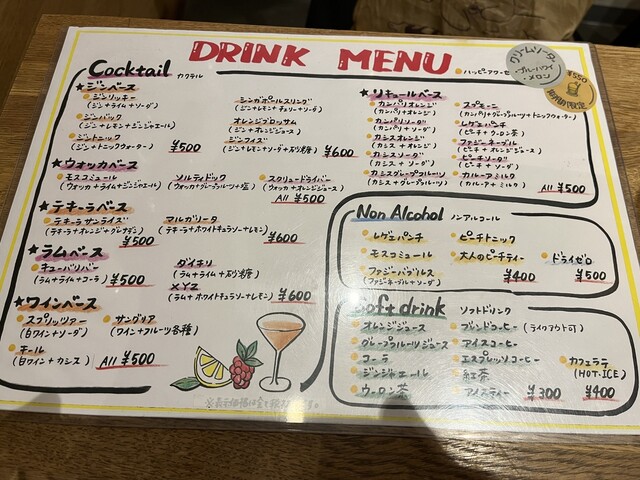 DRINK MENU
クリームソーダ
ブルーハワイ
・メロン
¥550
期間限定
Cocktail カクテル
★ジンベース
ジンリッキー
(ジン+ライム+ソーダ)
ジンバック
(ジン+レモン+ジンジャエール)
ジントニック
(ジン+トニックウォーター)
¥500
シンガポールスリング
(ジン+レモン+チェリー+ソーダ)
オレンジブロッサム
(ジン+オレンジジュース)
ジンフィズ
(ジン+レモン+ソーダ+砂糖)
¥600
★ウォッカベース
モスコミュール
(ウォッカ+ライム+ジンジャエール)
ソルティドック
(ウォッカ+グレープフルーツ+塩)
スクリュードライバー
(ウォッカ+オレンジジュース)
All ¥500
★テキーラベース
テキーラサンライズ
(テキーラ+オレンジ+グレナデン)
¥500
マルガリータ
(テキーラ+ホワイトキュラソー+レモン)
¥600
★ラムベース
キューバリバー
(ラム+ライム+コーラ)
¥500
ダイキリ
(ラム+ライム+砂糖)
XYZ
(ラム+ホワイトキュラソー+レモン)
¥600
★ワインベース
スプリッツァー
(白ワイン+ソーダ)
サングリア
(ワイン+フルーツ各種)
キール
(白ワイン+カシス)
All ¥500
★リキュールベース
カンパリオレンジ
(カンパリ+オレンジ)
カンパリソーダ
(カンパリ+ソーダ)
カシスオレンジ
(カシス+オレンジ)
カシスソーダ
(カシス+ソーダ)
カシスグレープフルーツ
(カシス+グレープフルーツ)
スプモーニ
(カンパリ+グレープフルーツ+トニックウォーター)
レゲエパンチ
(ピーチ+ウーロン茶)
ファジーネーブル
(ピーチ+オレンジジュース)
ピーチソーダ
(ピーチ+ソーダ)
カルーアミルク
(カルーア+ミルク)
All ¥500
Non Alcohol ノンアルコール
レゲエパンチ
モスコミュール
ファジーバブルス
(ファジーネーブル+ソーダ)
ピーチトニック
大人のピーチティー
¥400
ドライゼロ
¥500
Soft drink ソフトドリンク
オレンジジュース
グレープフルーツジュース
コーラ
ジンジャエール
ウーロン茶
ブレンドコーヒー (テイクアウト可)
アイスコーヒー
エスプレッソコーヒー
紅茶
アイスティー
¥300
カフェラテ
(HOT・ICE)
¥400